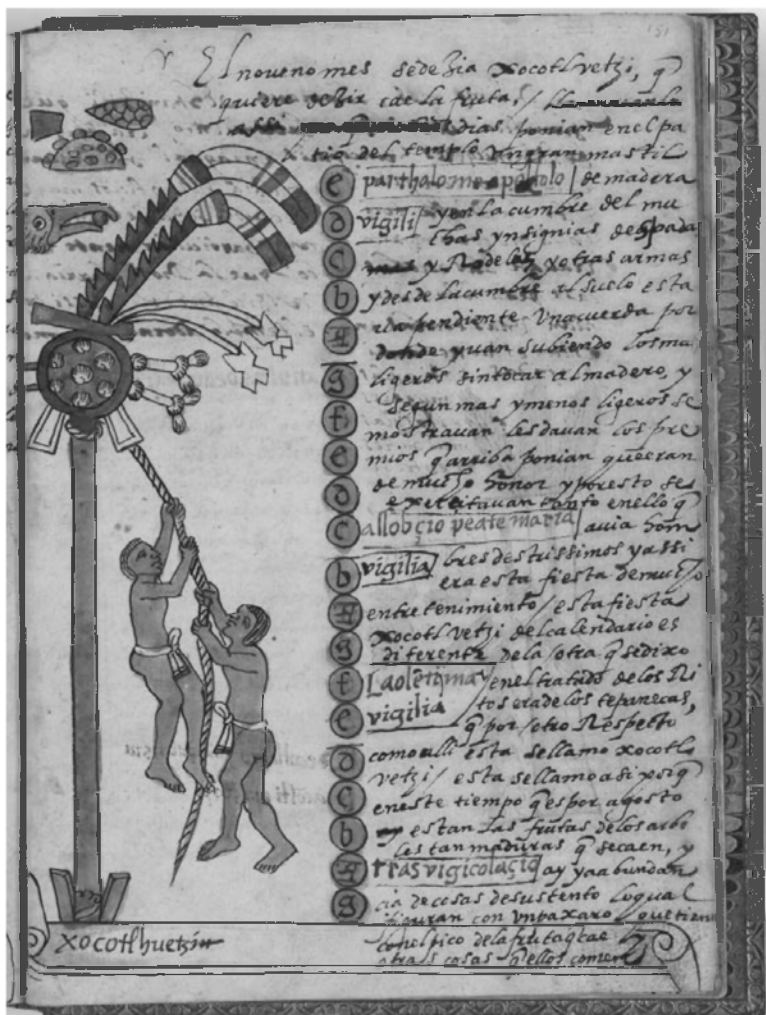 151
El noveno mes sedezia xocotl vetzi, q̃
quiere dezir cae la fruta, /
assi dias ponian enel pa
tio del templo vn gran mastil
e parthalome apostolo / de madera
d vigili yen la cumbre del mu
chas ynsignias de espada
c y Rodelas y otras armas
b y desde la cumbre al suelo esta
A va pendiente vna cuerda por
donde yuan subiendo los mas
g ligeros sin tocar al madero, y
f segun mas y menos ligeros se
mostravan les davan los pre
e mios q̃ arriba ponian que eran
d de mucho honor y por esto se
exercitavan tanto enello q̃
c allobcio peate maria / avia hom
b vigilia bres destrissimos y assi
era esta fiesta de mucho
A entretenimiento / esta fiesta
xocotl vetzi del calendario es
g diferente de la otra q̃ se dixo
f Laolẽtima / enel tratado delos Ri
e vigilia tos era delos tepanecas,
q̃ por otro Respecto
d como alli esta sellamo xocotl
vetzi / esta sellamo asi porq̃
c eneste tiempo q̃ es por agosto
b estan las frutas delos arbo
les tan maduras q̃ se caen, y
A tras vigicolaçiq ay ya abundan
g cia de cosas de sustento loqual
figuran con vn paxaro que tiene
conel pico dela fruta q̃ cae
otras cosas q̃ ellos comen
xocotlhuetzin